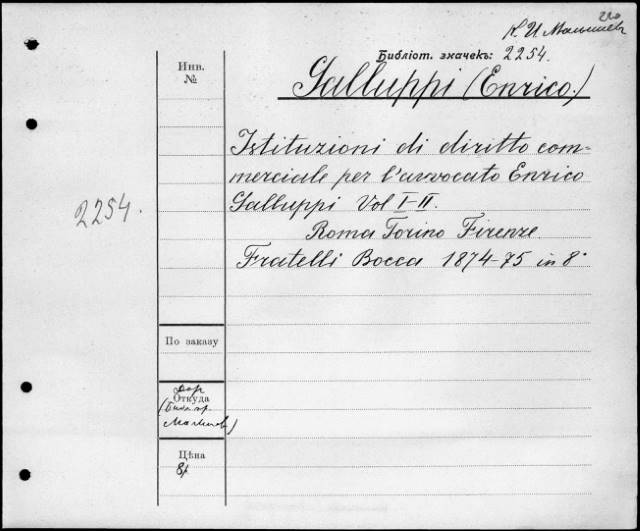 К. И. Малышев
Библіот. значекъ: 2254.
Galluppi (Enrico.)
Инв.
№
Istituzioni di diritto com-
merciale per l'avvocato Enrico
Galluppi Vol I-II.
2254.
Roma Torino Firenze.
Fratelli Bocca 1874-75 in 8°
По заказу
дар
Откуда
Малышев)
Цѣна